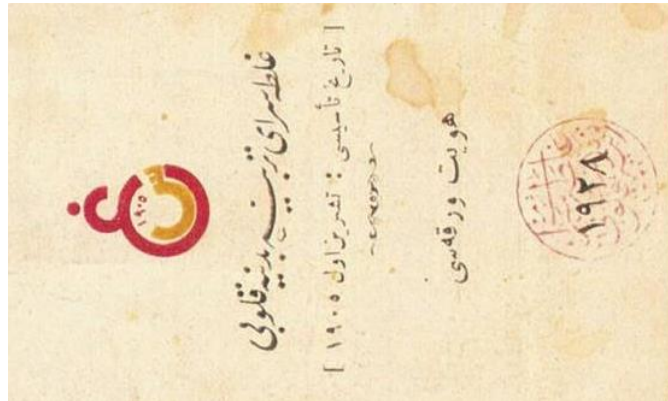 ١٩٠٥
غلطه سرای تربیهٔ بدنیه قلوبی
[ تاریخ تأسیسی : تشرین اول ١٩٠٥ ]
هویت ورقه‌سی
١٩٢٨